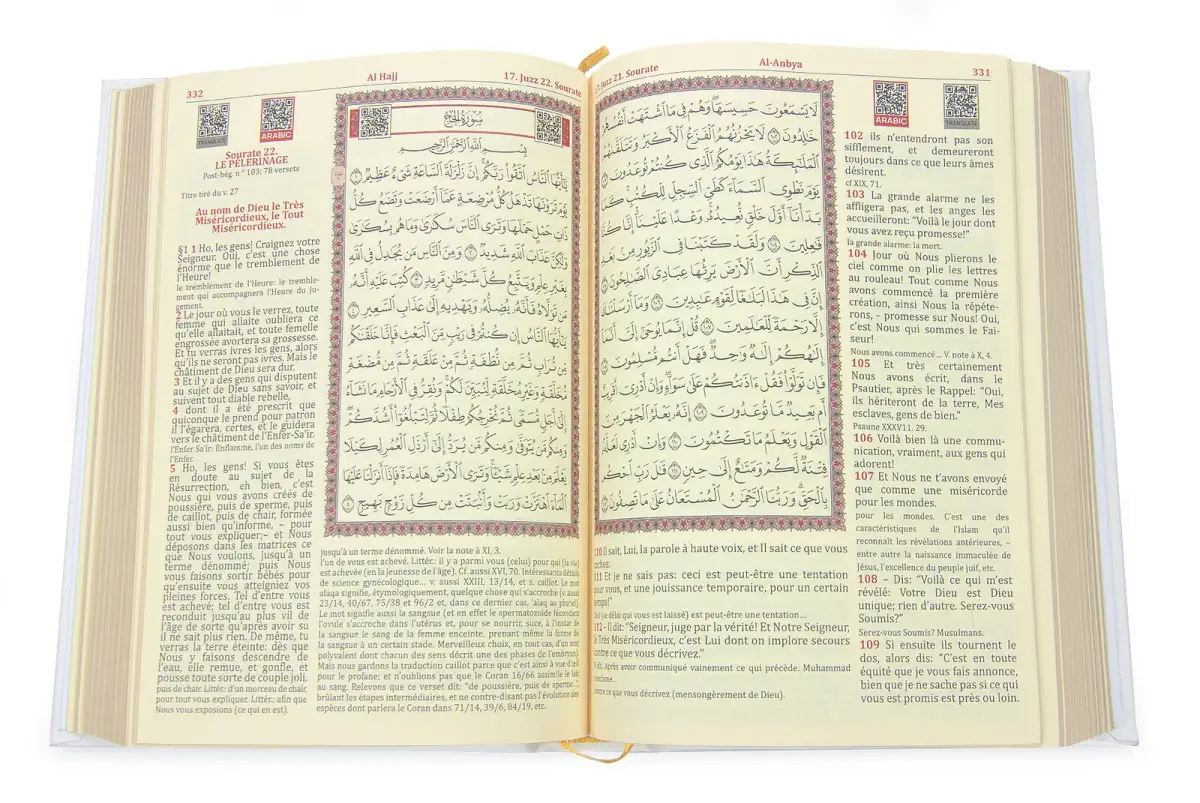 17. Juzz 21. Sourate
Al-Anbya
331
ARABIC
TRANSLATE
لَا يَسْمَعُونَ حَسِيسَهَا وَهُمْ فِي مَا اشْتَهَتْ أَنفُسُهُمْ
خَالِدُونَ ١٠٢ لَا يَحْزُنُهُمُ الْفَزَعُ الْأَكْبَرُ وَتَتَلَقَّاهُمُ
الْمَلَائِكَةُ هَذَا يَوْمُكُمُ الَّذِي كُنتُمْ تُوعَدُونَ ١٠٣
يَوْمَ نَطْوِي السَّمَاءَ كَطَيِّ السِّجِلِّ لِلْكُتُبِ كَمَا
بَدَأْنَا أَوَّلَ خَلْقٍ نُّعِيدُهُ وَعْدًا عَلَيْنَا إِنَّا كُنَّا
فَاعِلِينَ ١٠٤ وَلَقَدْ كَتَبْنَا فِي الزَّبُورِ مِن بَعْدِ
الذِّكْرِ أَنَّ الْأَرْضَ يَرِثُهَا عِبَادِيَ الصَّالِحُونَ ١٠٥
إِنَّ فِي هَذَا لَبَلَاغًا لِّقَوْمٍ عَابِدِينَ ١٠٦ وَمَا أَرْسَلْنَاكَ
إِلَّا رَحْمَةً لِّلْعَالَمِينَ ١٠٧ قُلْ إِنَّمَا يُوحَى إِلَيَّ أَنَّمَا
إِلَهُكُمْ إِلَهٌ وَاحِدٌ فَهَلْ أَنتُم مُّسْلِمُونَ ١٠٨
فَإِن تَوَلَّوْا فَقُلْ آذَنتُكُمْ عَلَى سَوَاءٍ وَإِنْ أَدْرِي أَقَرِيبٌ
أَم بَعِيدٌ مَّا تُوعَدُونَ ١٠٩ إِنَّهُ يَعْلَمُ الْجَهْرَ مِنَ
الْقَوْلِ وَيَعْلَمُ مَا تَكْتُمُونَ ١١٠ وَإِنْ أَدْرِي لَعَلَّهُ
فِتْنَةٌ لَّكُمْ وَمَتَاعٌ إِلَى حِينٍ ١١١ قَالَ رَبِّ احْكُم
بِالْحَقِّ وَرَبُّنَا الرَّحْمَنُ الْمُسْتَعَانُ عَلَى مَا تَصِفُونَ ١١٢
102 ils n'entendront pas son
sifflement, et demeureront
toujours dans ce que leurs âmes
désirent.
cf XIX, 71.
103 La grande alarme ne les
affligera pas, et les anges les
accueilleront: "Voilà le jour dont
vous avez reçu promesse!"
la grande alarme: la mort.
104 Jour où Nous plierons le
ciel comme on plie les lettres
au rouleau! Tout comme Nous
avons commencé la première
création, ainsi Nous la répéte-
rons, – promesse sur Nous! Oui,
c'est Nous qui sommes le Fai-
seur!
Nous avons commencé... V. note à X, 4.
105 Et très certainement
Nous avons écrit, dans le
Psautier, après le Rappel: "Oui,
ils hériteront de la terre, Mes
esclaves, gens de bien."
Psaune XXXV11. 29.
106 Voilà bien là une commu-
nication, vraiment, aux gens qui
adorent!
107 Et Nous ne t'avons envoyé
que comme une miséricorde
pour les mondes.
pour les mondes. C'est une des
caractéristiques de l'Islam qu'il
reconnaît les révélations antérieures, –
entre autre la naissance immaculée de
Jésus, l'excellence du peuple juif, etc.
108 – Dis: "Voilà ce qui m'est
révélé: Votre Dieu est Dieu
unique; rien d'autre. Serez-vous
Soumis?"
Serez-vous Soumis? Musulmans.
109 Si ensuite ils tournent le
dos, alors dis: "C'est en toute
équité que je vous fais annonce,
bien que je ne sache pas si ce qui
vous est promis est près ou loin.
110 Il sait, Lui, la parole à haute voix, et Il sait ce que vous
cachez.
111 Et je ne sais pas: ceci est peut-être une tentation
pour vous, et une jouissance temporaire, pour un certain
temps!"
(le délai qui vous est laissé) est peut-être une tentation...
112 – Il dit: "Seigneur, juge par la vérité! Et Notre Seigneur,
le Très Miséricordieux, c'est Lui dont on implore secours
contre ce que vous décrivez."
Il dit. Après avoir communiqué vainement ce qui précède. Muhammad
contre ce que vous décrivez (mensongèrement de Dieu).
332
Al Hajj
17. Juzz 22. Sourate
TRANSLATE
ARABIC
سُورَةُ الحَجِّ
بِسْمِ اللَّهِ الرَّحْمَنِ الرَّحِيمِ
يَا أَيُّهَا النَّاسُ اتَّقُوا رَبَّكُمْ إِنَّ زَلْزَلَةَ السَّاعَةِ شَيْءٌ عَظِيمٌ ١
يَوْمَ تَرَوْنَهَا تَذْهَلُ كُلُّ مُرْضِعَةٍ عَمَّا أَرْضَعَتْ وَتَضَعُ كُلُّ
ذَاتِ حَمْلٍ حَمْلَهَا وَتَرَى النَّاسَ سُكَارَى وَمَا هُم بِسُكَارَى
وَلَكِنَّ عَذَابَ اللَّهِ شَدِيدٌ ٢ وَمِنَ النَّاسِ مَن يُجَادِلُ فِي اللَّهِ
بِغَيْرِ عِلْمٍ وَيَتَّبِعُ كُلَّ شَيْطَانٍ مَّرِيدٍ ٣ كُتِبَ عَلَيْهِ أَنَّهُ
مَن تَوَلَّاهُ فَأَنَّهُ يُضِلُّهُ وَيَهْدِيهِ إِلَى عَذَابِ السَّعِيرِ ٤
يَا أَيُّهَا النَّاسُ إِن كُنتُمْ فِي رَيْبٍ مِّنَ الْبَعْثِ فَإِنَّا خَلَقْنَاكُم
مِّن تُرَابٍ ثُمَّ مِن نُّطْفَةٍ ثُمَّ مِنْ عَلَقَةٍ ثُمَّ مِن مُّضْغَةٍ
مُّخَلَّقَةٍ وَغَيْرِ مُخَلَّقَةٍ لِّنُبَيِّنَ لَكُمْ وَنُقِرُّ فِي الْأَرْحَامِ مَا نَشَاءُ
إِلَى أَجَلٍ مُّسَمًّى ثُمَّ نُخْرِجُكُمْ طِفْلًا ثُمَّ لِتَبْلُغُوا أَشُدَّكُمْ
وَمِنكُم مَّن يُتَوَفَّى وَمِنكُم مَّن يُرَدُّ إِلَى أَرْذَلِ الْعُمُرِ لِكَيْلَا
يَعْلَمَ مِن بَعْدِ عِلْمٍ شَيْئًا وَتَرَى الْأَرْضَ هَامِدَةً فَإِذَا أَنزَلْنَا عَلَيْهَا
الْمَاءَ اهْتَزَّتْ وَرَبَتْ وَأَنبَتَتْ مِن كُلِّ زَوْجٍ بَهِيجٍ ٥
Sourate 22.
LE PELERINAGE
Post-bég. n° 103; 78 versets
Titre tiré du v. 27
Au nom de Dieu le Très
Miséricordieux, le Tout
Miséricordieux.
§1 1 Ho, les gens! Craignez votre
Seigneur. Oui, c'est une chose
énorme que le tremblement de
l'Heure!
le tremblement de l'Heure: le tremble-
ment qui accompagnera l'Heure du Ju-
gement.
2 Le jour où vous le verrez, toute
femme qui allaite oubliera ce
qu'elle allaitait, et toute femelle
engrossée avortera sa grossesse.
Et tu verras ivres les gens, alors
qu'ils ne seront pas ivres. Mais le
châtiment de Dieu sera dur.
3 Et il y a des gens qui disputent
au sujet de Dieu sans savoir, et
suivent tout diable rebelle,
4 dont il a été prescrit que
quiconque le prend pour patron
il l'égarera, certes, et le guidera
vers le châtiment de l'Enfer-Sa'ir.
l'Enfer Sa'ir: Enflammé, l'un des noms de
l'Enfer.
5 Ho, les gens! Si vous êtes
en doute au sujet de la
Résurrection, eh bien, c'est
Nous qui vous avons créés de
poussière, puis de sperme, puis
de caillot, puis de chair, formée
aussi bien qu'informe, – pour
tout vous expliquer;– et Nous
déposons dans les matrices ce
que Nous voulons, jusqu'à un
terme dénommé; puis Nous
vous faisons sortir bébés pour
qu'ensuite vous atteigniez vos
pleines forces. Tel d'entre vous
est achevé; tel d'entre vous est
reconduit jusqu'au plus vil de
l'âge de sorte qu'après avoir su
il ne sait plus rien. De même, tu
verras la terre éteinte: dès que
Nous y faisons descendre de
l'eau, elle remue, et gonfle, et
pousse toute sorte de couple joli.
puis de chair. Littér: d'un morceau de chair.
pour tout vous expliquer. Littér.: afin que
Nous vous exposions (ce qui en est).
jusqu'à un terme dénommé. Voir la note à XI, 3.
l'un de vous est achevé. Littér: il y a parmi vous (celui) pour qui (la vie)
est achevée (en la jeunesse de l'âge). Cf. aussi XVI, 70. Intéressants détails
de science gynécologique... v. aussi XXIII, 13/14, et s. caillot. Le mot
alaqa signifie, étymologiquement, quelque chose qui s'accroche (v. aussi
23/14, 40/67, 75/38 et 96/2 et, dans ce dernier cas, 'alaq au pluriel).
Le mot signifie aussi la sangsue (et en effet le spermatozoïde fécondant
l'ovule s'accroche dans l'utérus et, pour se nourrir, suce, à l'instar de
la sangsue le sang de la femme enceinte, prenant même la forme de
la sangsue à un certain stade. Merveilleux choix, en tout cas, d'un mot
polyvalent dont chacun des sens décrit une des phases de l'embryon).
Mais nous gardons la traduction caillot parce que c'est ainsi à vue d'œil
pour le profane; et n'oublions pas que le Coran 16/66 assimile le lait
au sang. Relevons que ce verset dit: "de poussière, puis de sperme...",
brûlant les étapes intermédiaires, et ne contre-disant pas l'évolution des
espèces dont parlera le Coran dans 71/14, 39/6, 84/19, etc.